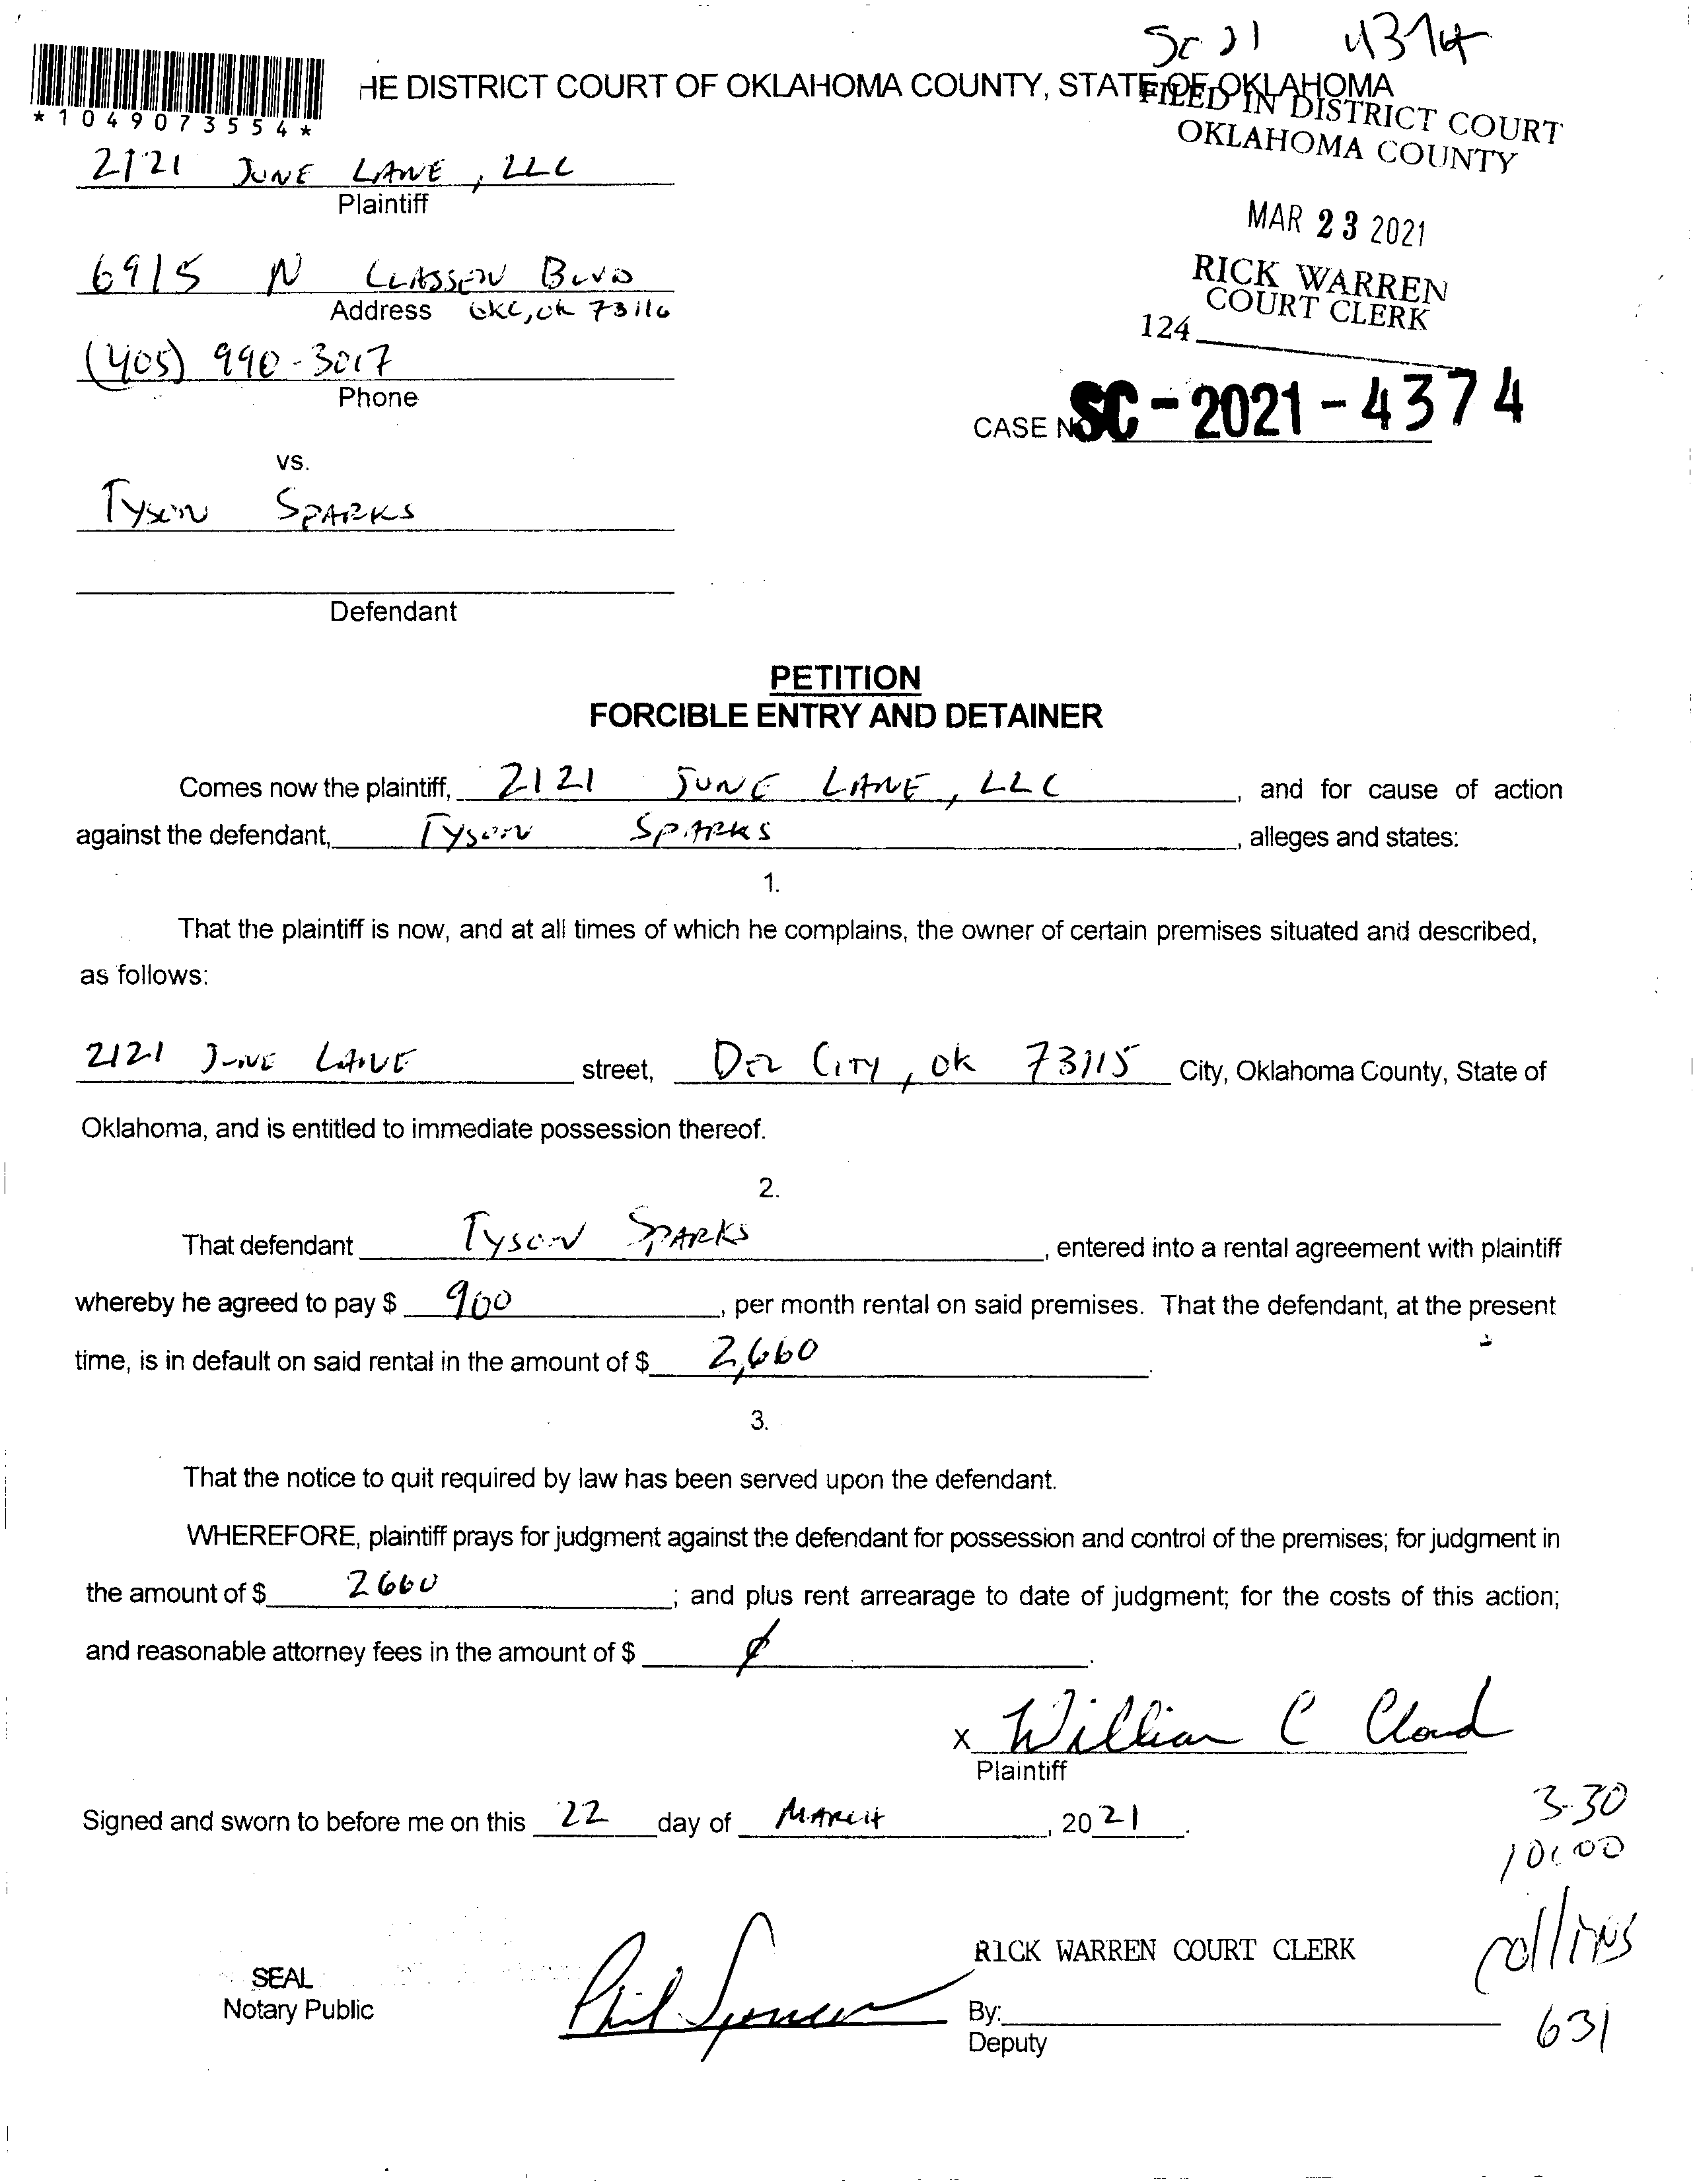 SC 21 4374
HE DISTRICT COURT OF OKLAHOMA COUNTY, STATE OF OKLAHOMA
*1049073554*
FILED IN DISTRICT COURT
OKLAHOMA COUNTY
MAR 23 2021
RICK WARREN
COURT CLERK
124
2121 JUNE LANE, LLC
Plaintiff
6915 N CLASSEN BLVD
Address OKC, OK 73116
(405) 990-3017
Phone
CASE N SC-2021-4374
vs.
TYSON SPARKS
Defendant
PETITION
FORCIBLE ENTRY AND DETAINER
Comes now the plaintiff, 2121 JUNE LANE, LLC, and for cause of action
against the defendant, TYSON SPARKS, alleges and states:
1.
That the plaintiff is now, and at all times of which he complains, the owner of certain premises situated and described,
as follows:
2121 JUNE LANE street, DEL CITY, OK 73115 City, Oklahoma County, State of
Oklahoma, and is entitled to immediate possession thereof.
2.
That defendant TYSON SPARKS, entered into a rental agreement with plaintiff
whereby he agreed to pay $ 900, per month rental on said premises. That the defendant, at the present
time, is in default on said rental in the amount of $ 2,660.
3.
That the notice to quit required by law has been served upon the defendant.
WHEREFORE, plaintiff prays for judgment against the defendant for possession and control of the premises; for judgment in
the amount of $ 2660; and plus rent arrearage to date of judgment; for the costs of this action;
and reasonable attorney fees in the amount of $
X William C Cloud
Plaintiff
Signed and sworn to before me on this 22 day of MARCH, 2021.
3-30
10:00
Collins
631
RICK WARREN COURT CLERK
SEAL
Notary Public
Phil Spencer
By:
Deputy